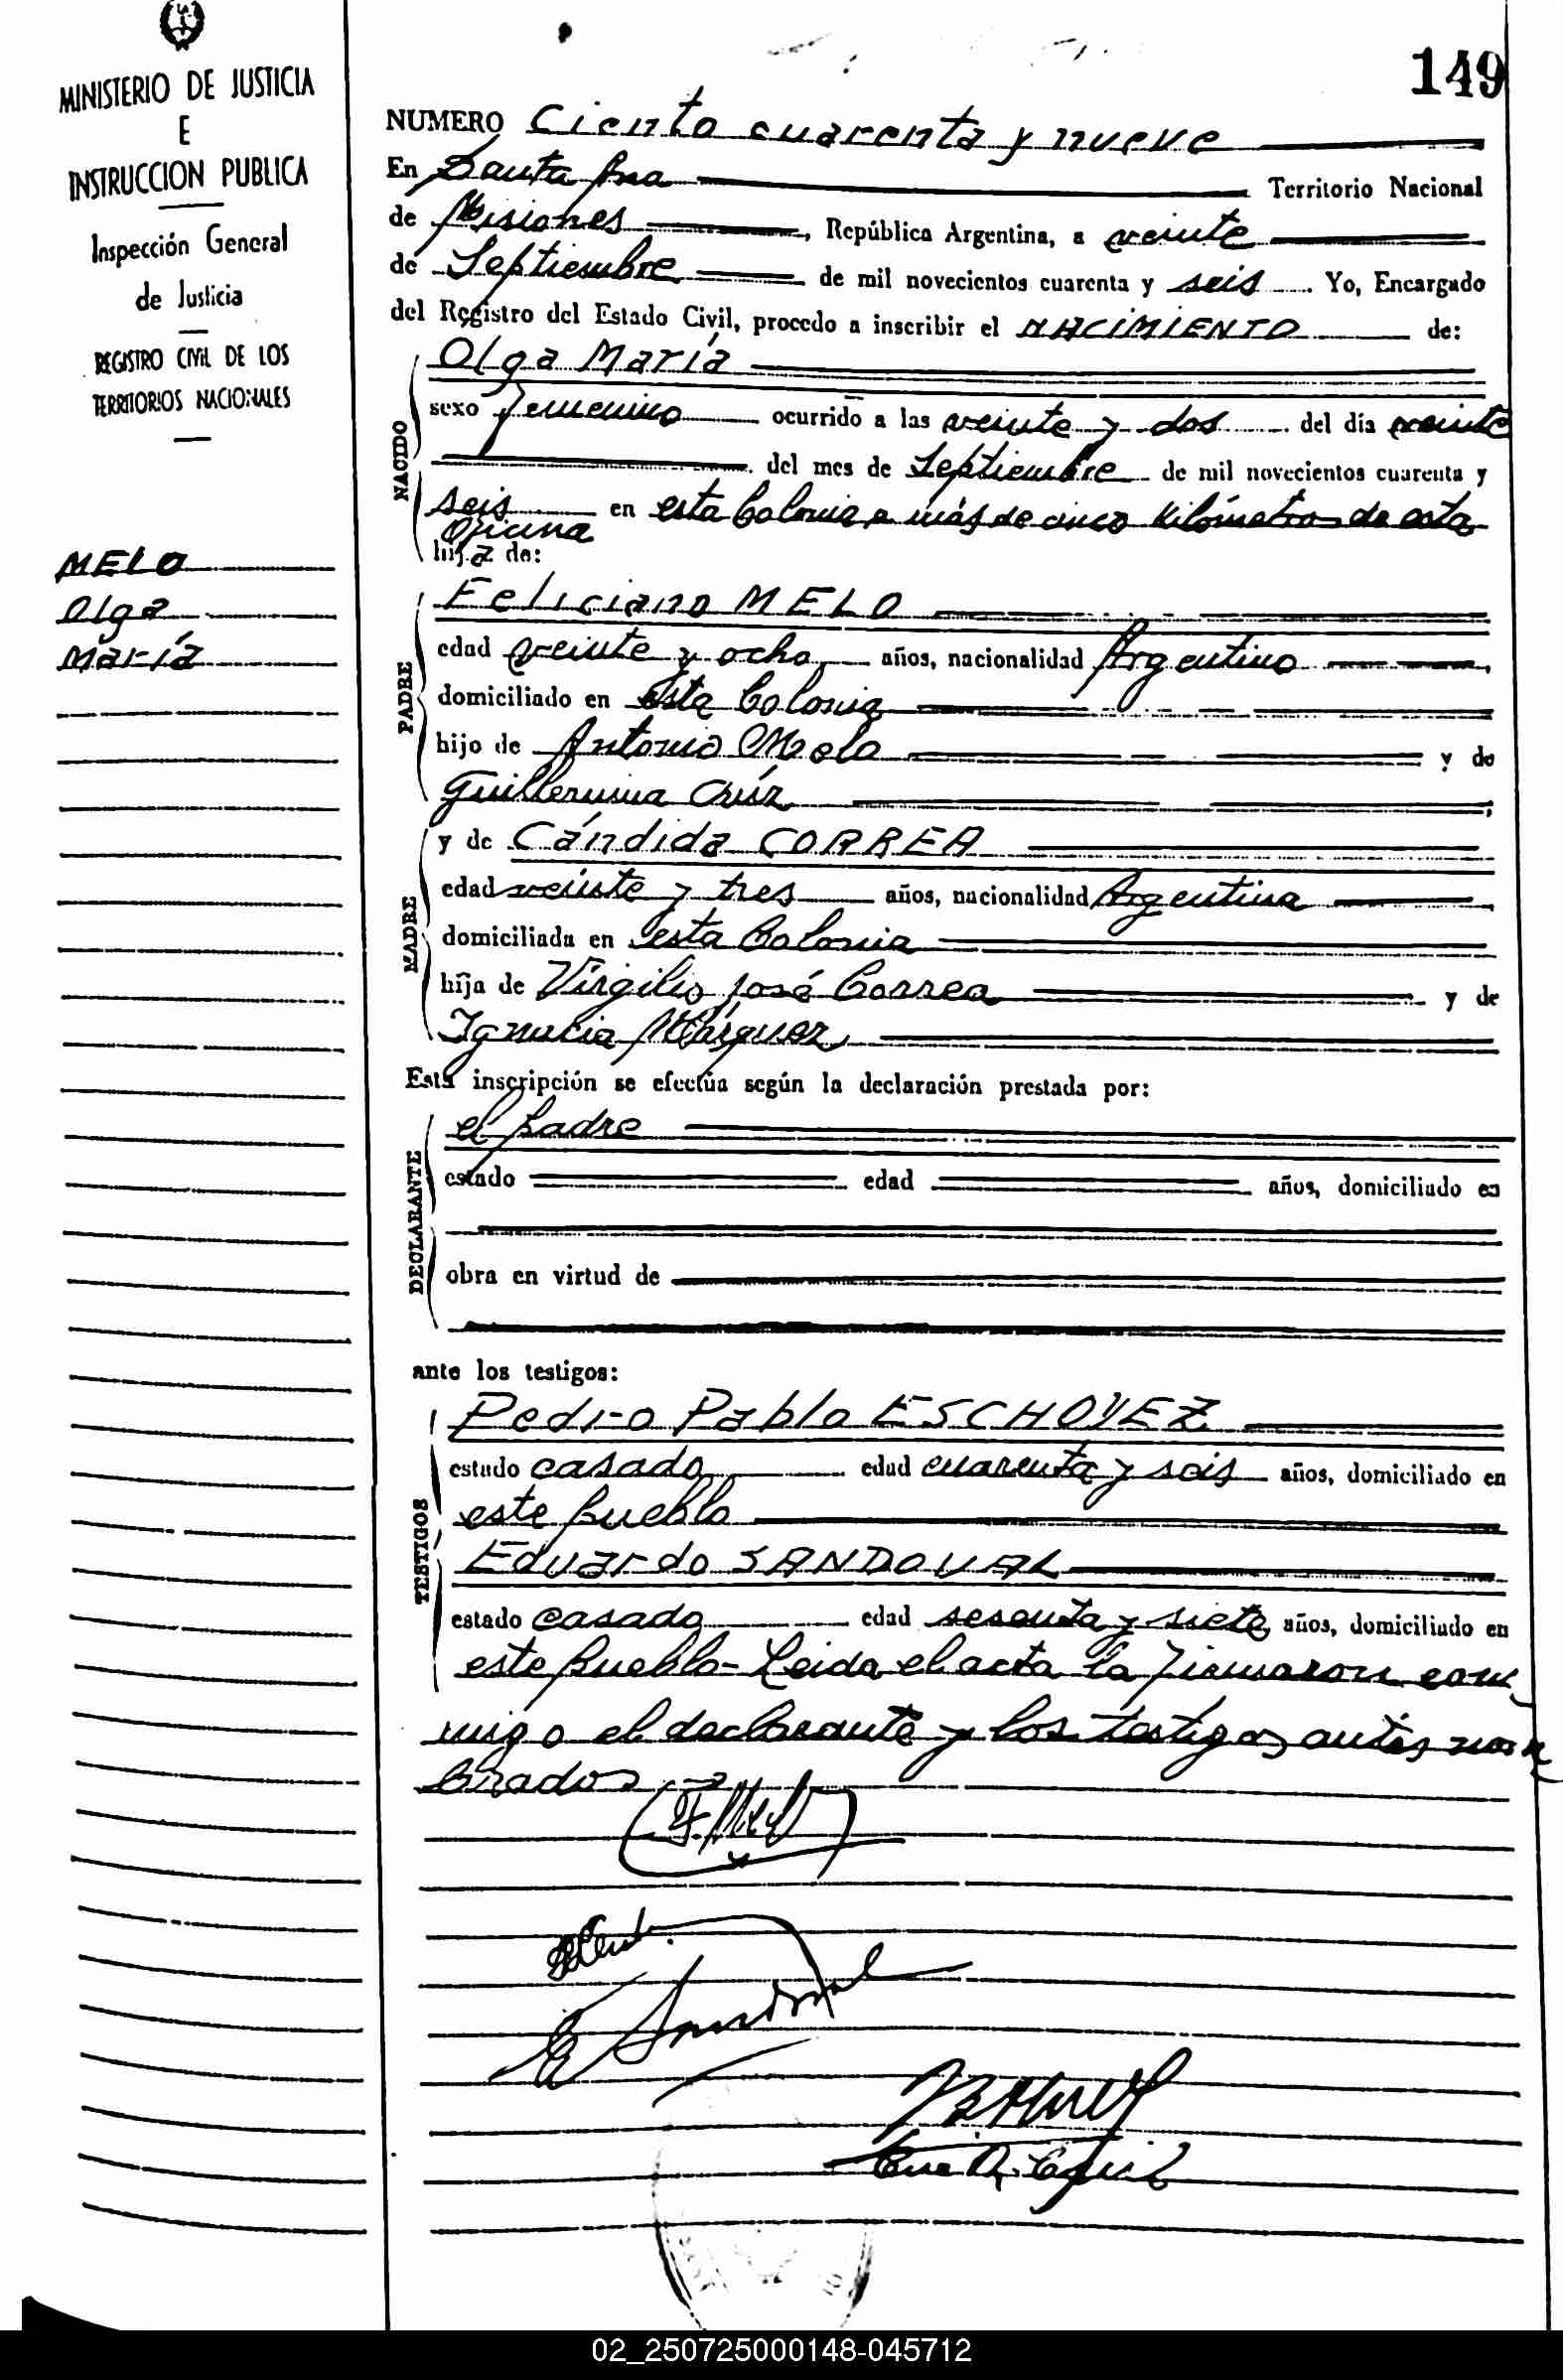 MINISTERIO DE JUSTICIA
E
INSTRUCCION PUBLICA
Inspección General
de Justicia
REGISTRO CIVIL DE LOS
TERRITORIOS NACIONALES
MELO
Olga
María
149
NUMERO Ciento cuarenta y nueve
En Santa Ana Territorio Nacional
de Misiones, República Argentina, a veinte
de Septiembre de mil novecientos cuarenta y seis. Yo, Encargado
del Registro del Estado Civil, procedo a inscribir el NACIMIENTO de:
NACIDO
Olga María
sexo femenino ocurrido a las veinte y dos del día veinte
del mes de Septiembre de mil novecientos cuarenta y
seis en esta Colonia a más de cinco kilómetros de esta
Oficina
hija de:
PADRE
Feliciano MELO
edad veinte y ocho años, nacionalidad Argentino
domiciliado en esta Colonia
hijo de Antonio Melo y de
Guillermina Crúz
MADRE
y de Cándida CORREA
edad veinte y tres años, nacionalidad Argentina
domiciliada en esta Colonia
hija de Virgilio José Correa y de
Ignacia Márquez
Esta inscripción se efectúa según la declaración prestada por:
DECLARANTE
el padre
estado edad años, domiciliado en
obra en virtud de
ante los testigos:
TESTIGOS
Pedro Pablo ESCHOYEZ
estado casado edad cuarenta y seis años, domiciliado en
este pueblo
Eduardo SANDOVAL
estado casado edad sesenta y siete años, domiciliado en
este pueblo - Leida el acta la firmaron con
migo el declarante y los testigos antes nom
brados
E Sandoval
02_250725000148-045712